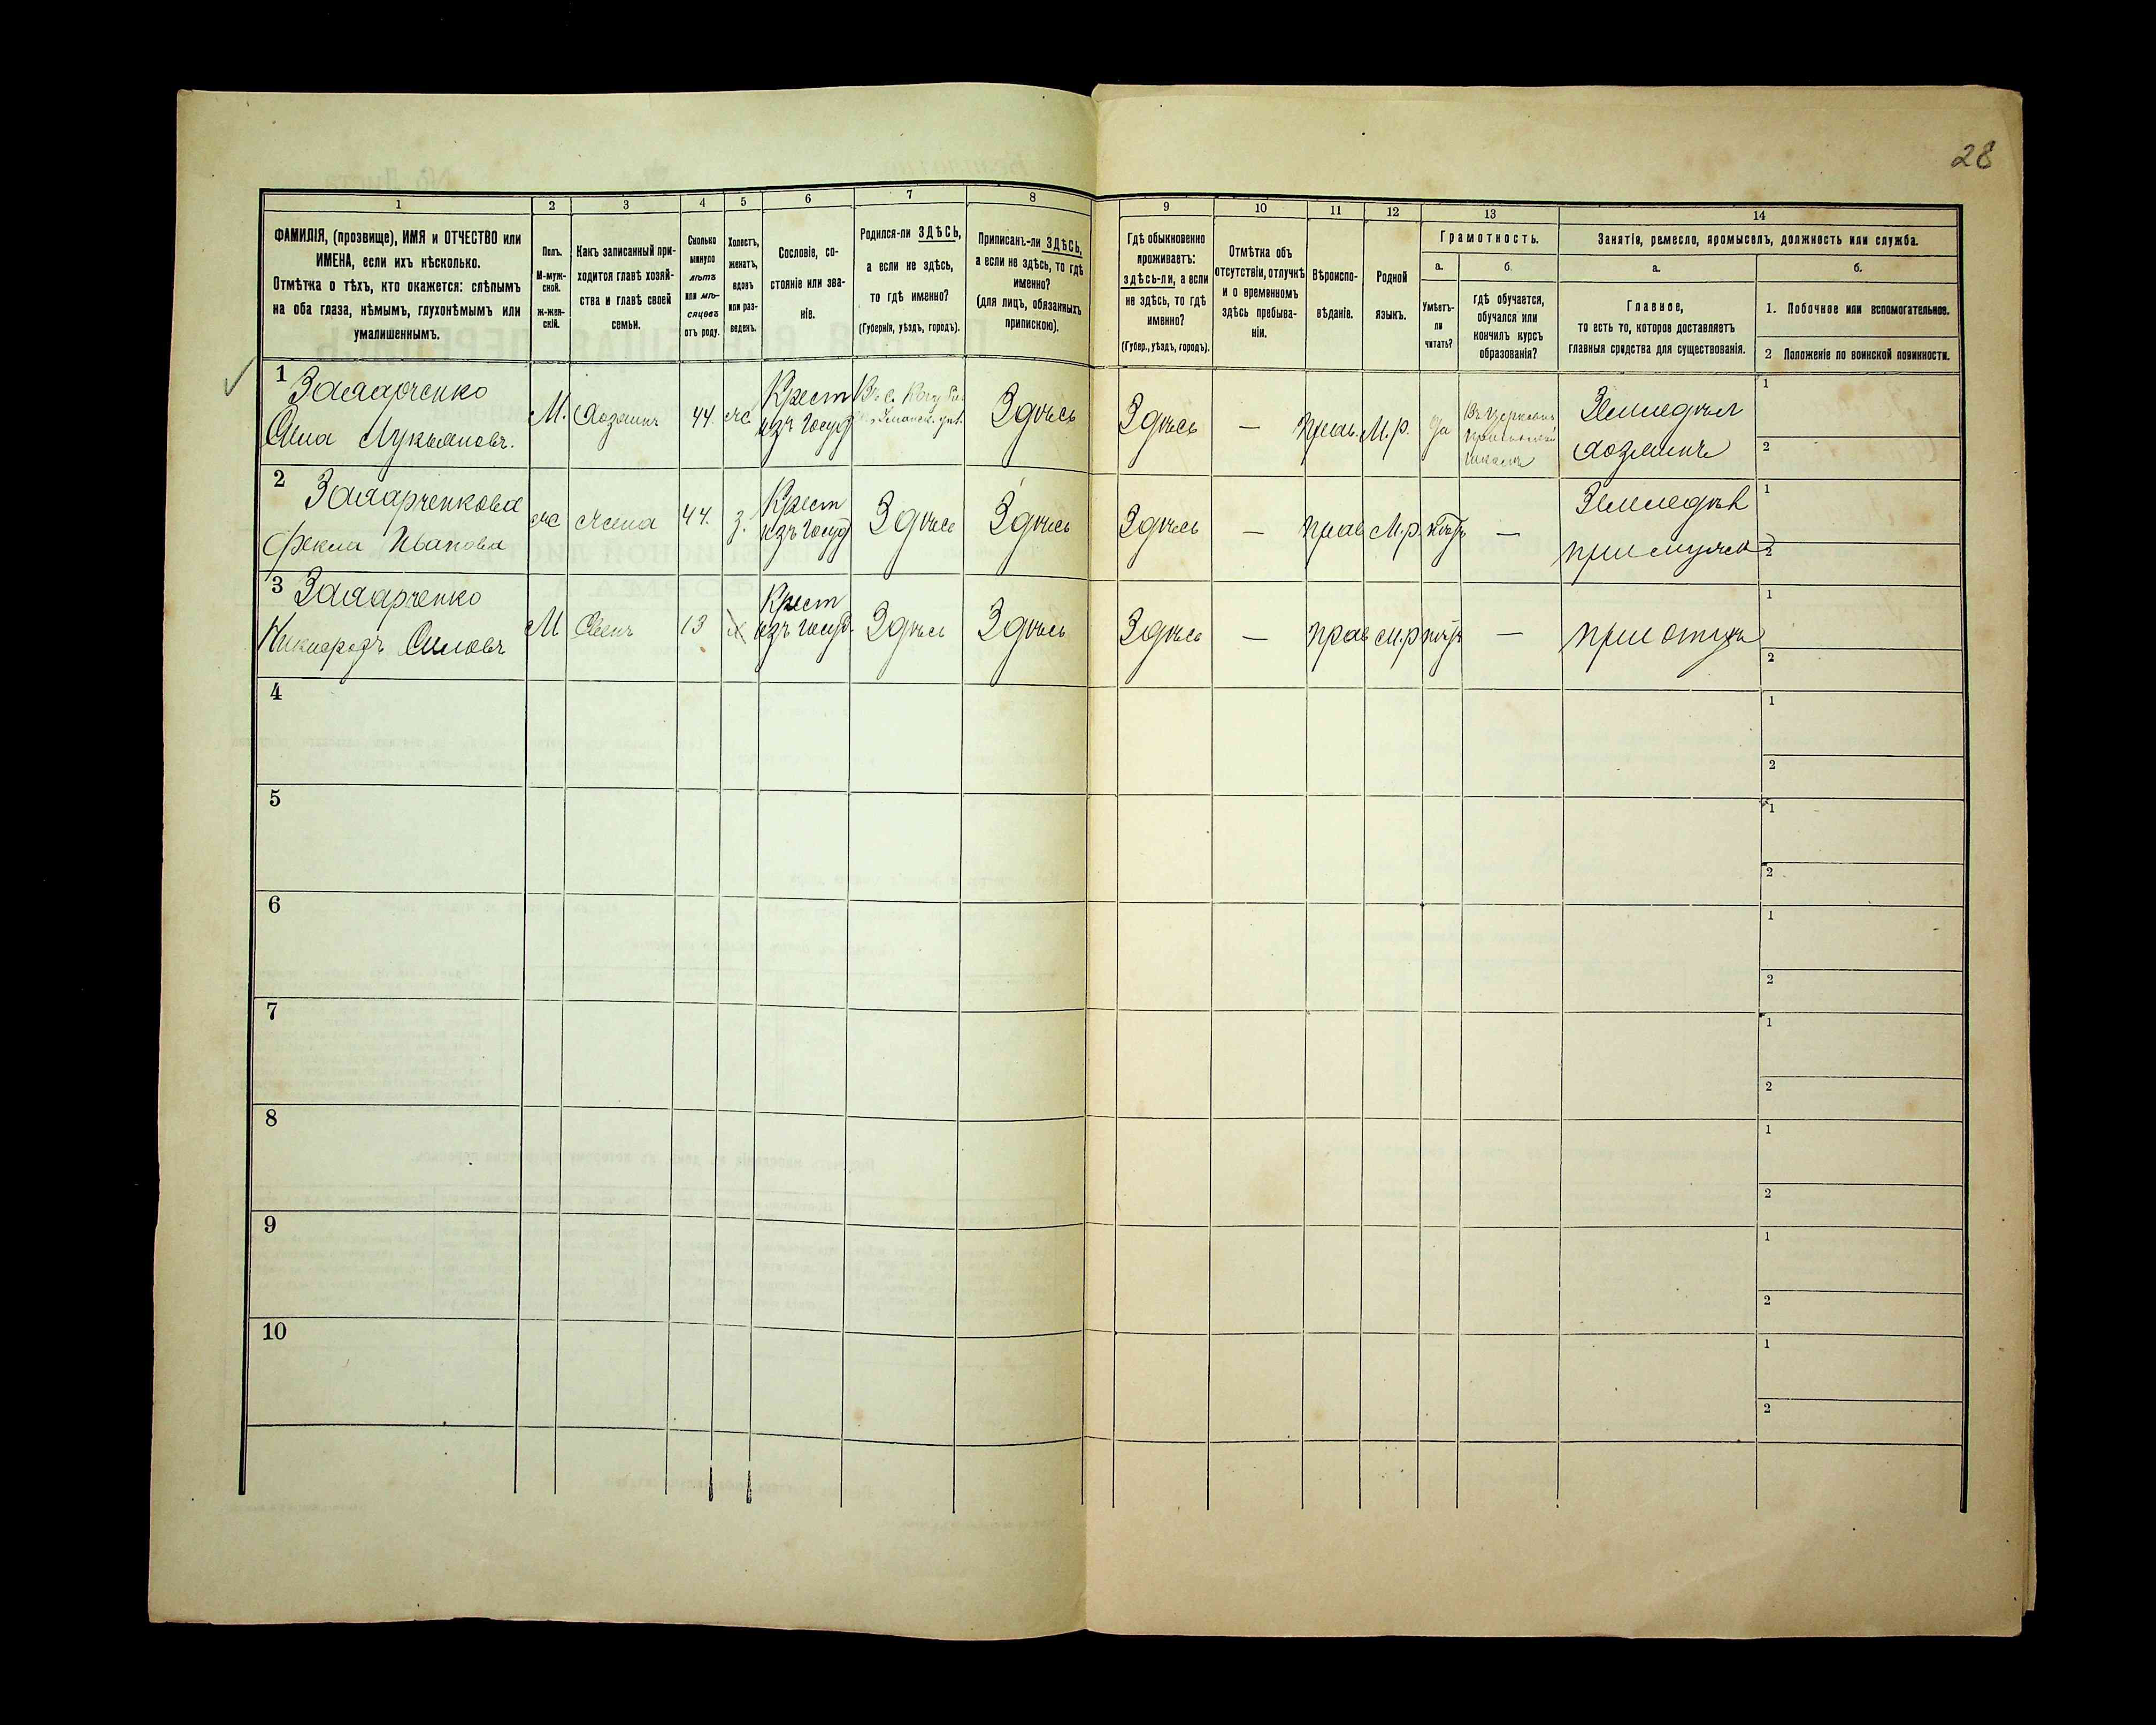 28
1 2 3 4 5 6 7 8 9 10 11 12 13 14
ФАМИЛІЯ, (прозвище), ИМЯ и ОТЧЕСТВО или
ИМЕНА, если ихъ нѣсколько.
Отмѣтка о тѣхъ, кто окажется: слѣпымъ
на оба глаза, нѣмымъ, глухонѣмымъ или
умалишеннымъ.
Полъ.
М-муж-
ской.
ж-жен-
скій.
Какъ записанный при-
ходится главѣ хозяй-
ства и главѣ своей
семьи.
Сколько
минуло
лѣтъ
или мѣ-
сяцевъ
отъ роду.
Холостъ,
женатъ,
вдовъ
или раз-
веденъ.
Сословіе, со-
стояніе или зва-
ніе.
Родился-ли ЗДѢСЬ,
а если не здѣсь,
то гдѣ именно?
(Губернія, уѣздъ, городъ).
Приписанъ-ли ЗДѢСЬ,
а если не здѣсь, то гдѣ
именно?
(для лицъ, обязанныхъ
припискою).
Гдѣ обыкновенно
проживаетъ:
здѣсь-ли, а если
не здѣсь, то гдѣ
именно?
(Губер., уѣздъ, городъ).
Отмѣтка объ
отсутствіи, отлучкѣ
и о временномъ
здѣсь пребыва-
ніи.
Вѣроиспо-
вѣданіе.
Родной
языкъ.
Грамотность.
а.
Умѣетъ-
ли
читать?
б.
гдѣ обучается,
обучался или
кончилъ курсъ
образованія?
Занятіе, ремесло, промыселъ, должность или служба.
а.
Главное,
то есть то, которое доставляетъ
главныя средства для существованія.
б.
1. Побочное или вспомогательное.
2 Положеніе по воинской повинности.
1 Захарченко
Сила Лукьяновъ.
М. хозяинъ 44. ж.
Крест
изъ госуд
Здѣсь Здѣсь — прав. М.р. да
школѣ
Земледѣл
хозяинъ
1
2
2 Захарченкова
Фекла Иванова
ж жена 44. з.
Крест
изъ госуд
Здѣсь Здѣсь Здѣсь — прав М.р. нѣтъ —
Земледѣл
при мужѣ
1
2
3 Захарченко
Никифоръ Силовъ
М Сынъ 13 х
Крест
изъ госуд.
Здѣсь Здѣсь Здѣсь — прав М.р нѣтъ — при отцѣ
1
2
4
1
2
5
1
2
6
1
2
7
1
2
8
1
2
9
1
2
10
1
2